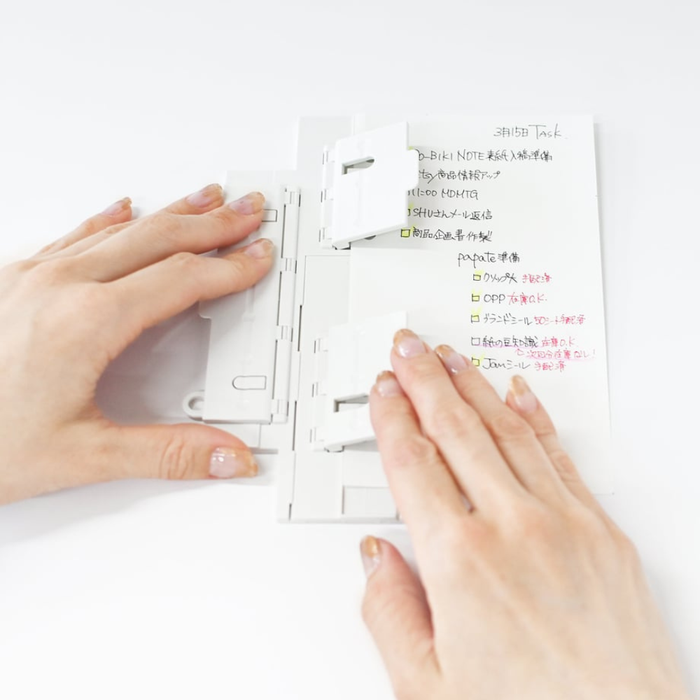 3月15日 TASK
o-BIKI NOTE 表紙入稿準備
tsy商品情報アップ
11:00 MDMTG
□SHUさんメール返信
□商品企画書作製!!
papate準備
□クリップ大 手配済
□OPP 在庫O.K.
□グランドミール 50シート手配済
□紙の豆知識 在庫O.K
次回分在庫なし!
□Jamミール 手配済